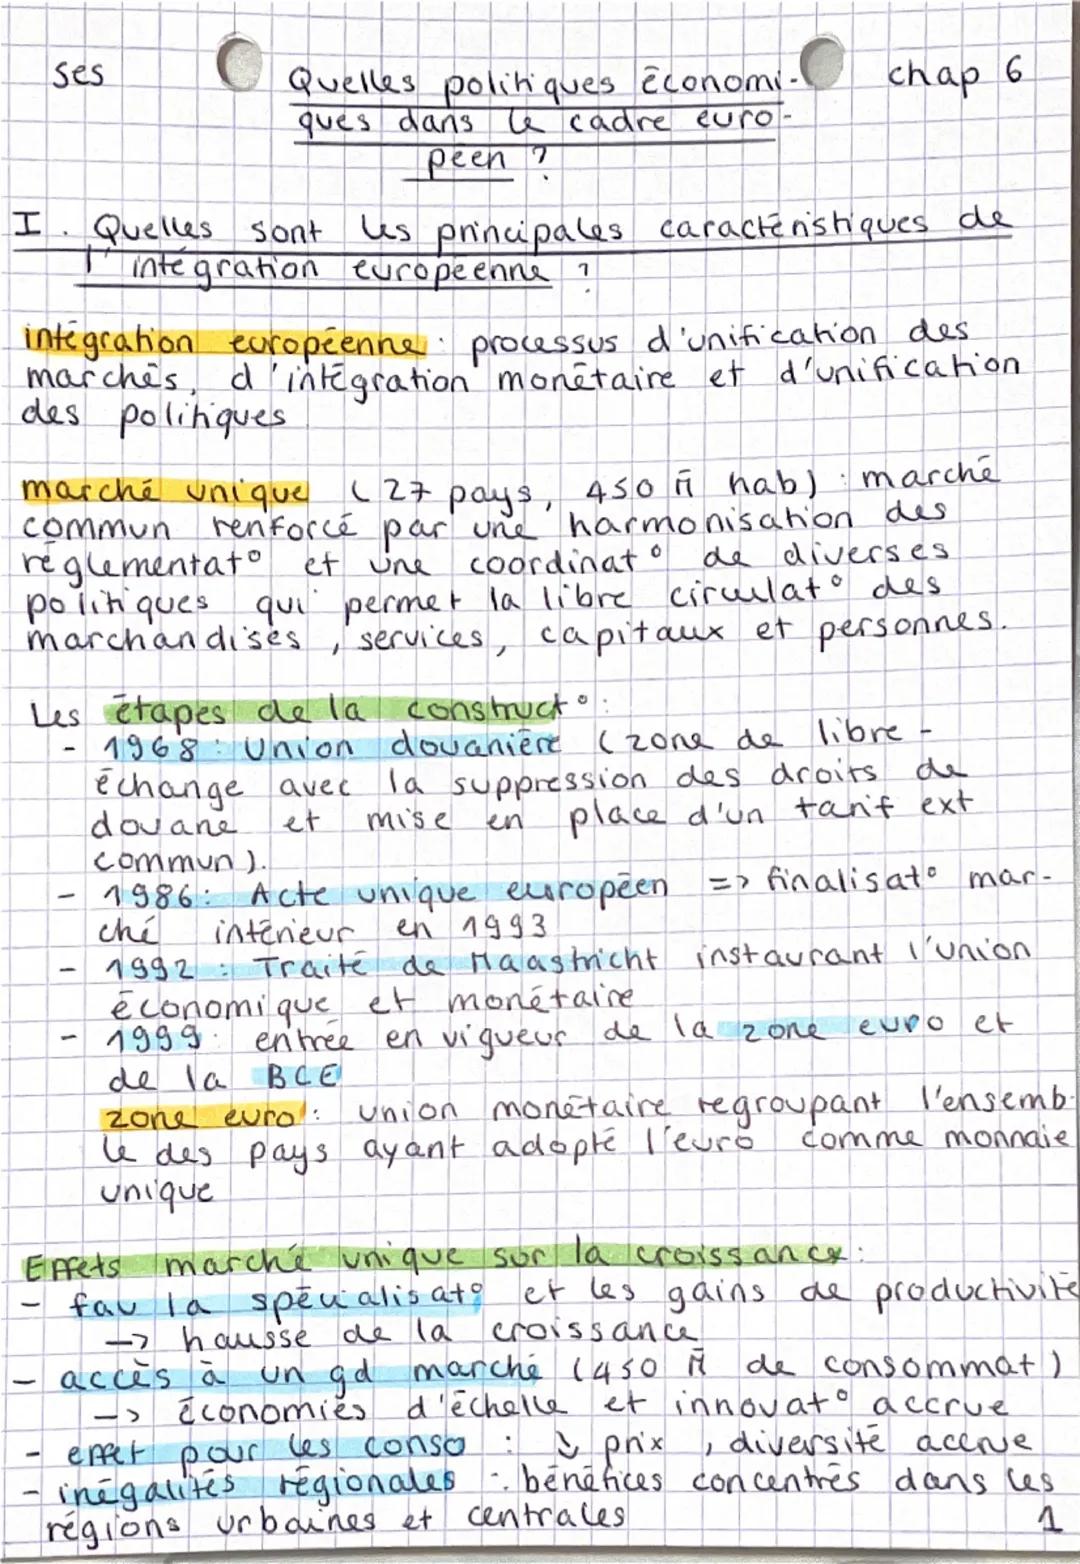 ses
Quelles politiques économi-
chap 6
ques dans le cadre euro-
péen ?
I. Quelles sont les principales caractéristiques de
l'intégration européenne ?
intégration européenne : processus d'unification des
marchés, d'intégration monétaire et d'unification
des politiques
marché unique (27 pays, 450 M hab) : marché
commun renforcé par une harmonisation des
réglementat° et une coordinat° de diverses
politiques qui permet la libre circulat° des
marchandises, services, capitaux et personnes.
Les étapes de la construct° :
- 1968 : Union douanière (zone de libre-
échange avec la suppression des droits de
douane et mise en place d'un tarif ext
commun).
- 1986 : Acte unique européen => finalisat° mar-
ché intérieur en 1993
- 1992 : Traité de Maastricht instaurant l'union
économique et monétaire
- 1999 : entrée en vigueur de la zone euro et
de la BCE
zone euro : union monétaire regroupant l'ensemb-
le des pays ayant adopté l'euro comme monnaie
unique
Effets marché unique sur la croissance :
- fav la spécialisat° et les gains de productivité
-> hausse de la croissance
- accès à un gd marché (450 M de consommat)
-> économies d'échelle et innovat° accrue
- effet pour les conso : ↓ prix, diversité accrue
- inégalités régionales : bénéfices concentrés dans les
régions urbaines et centrales
1